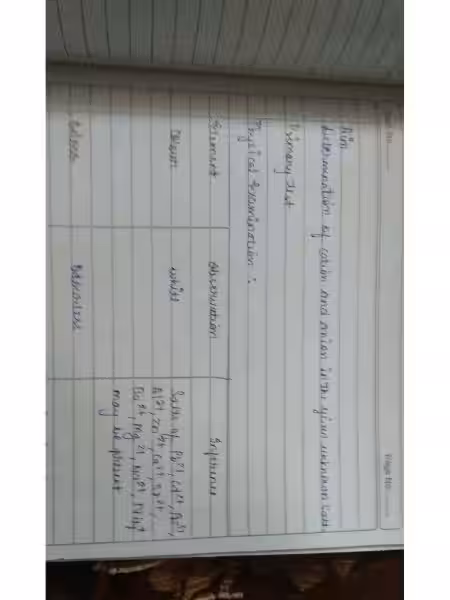 Page No.
Aim
determination of cation and anion in the given unknown salt.
Primary test
Physical Examination :
Experiment
observation
Inference
colour
white
Salts of Pb2+, Cd2+, As3+,
Al3+, Zn2+, Ca2+, Sr2+,
Ba2+, Mg2+, NH4+
may be present
odour
odourless